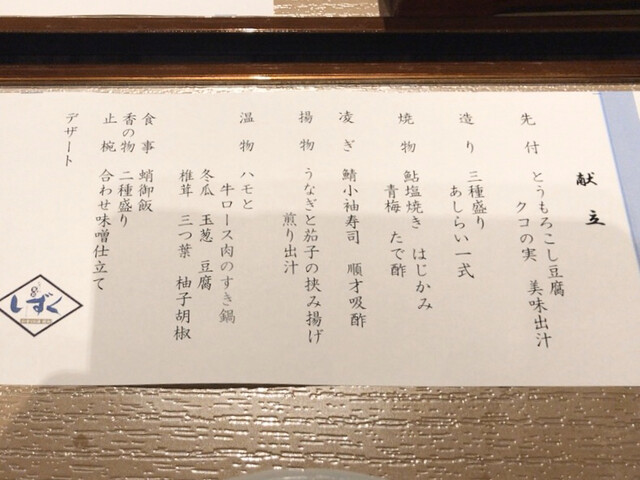 献立
先付 とうもろこし豆腐
クコの実 美味出汁
造り 三種盛り
あしらい一式
焼物 鮎塩焼き はじかみ
青梅 たで酢
凌ぎ 鯖小袖寿司 順才吸酢
揚物 うなぎと茄子の挟み揚げ
煎り出汁
温物 ハモと
牛ロース肉のすき鍋
冬瓜 玉葱 豆腐
椎茸 三つ葉 柚子胡椒
食事 蛸御飯
香の物 二種盛り
止椀 合わせ味噌仕立て
デザート
しずく